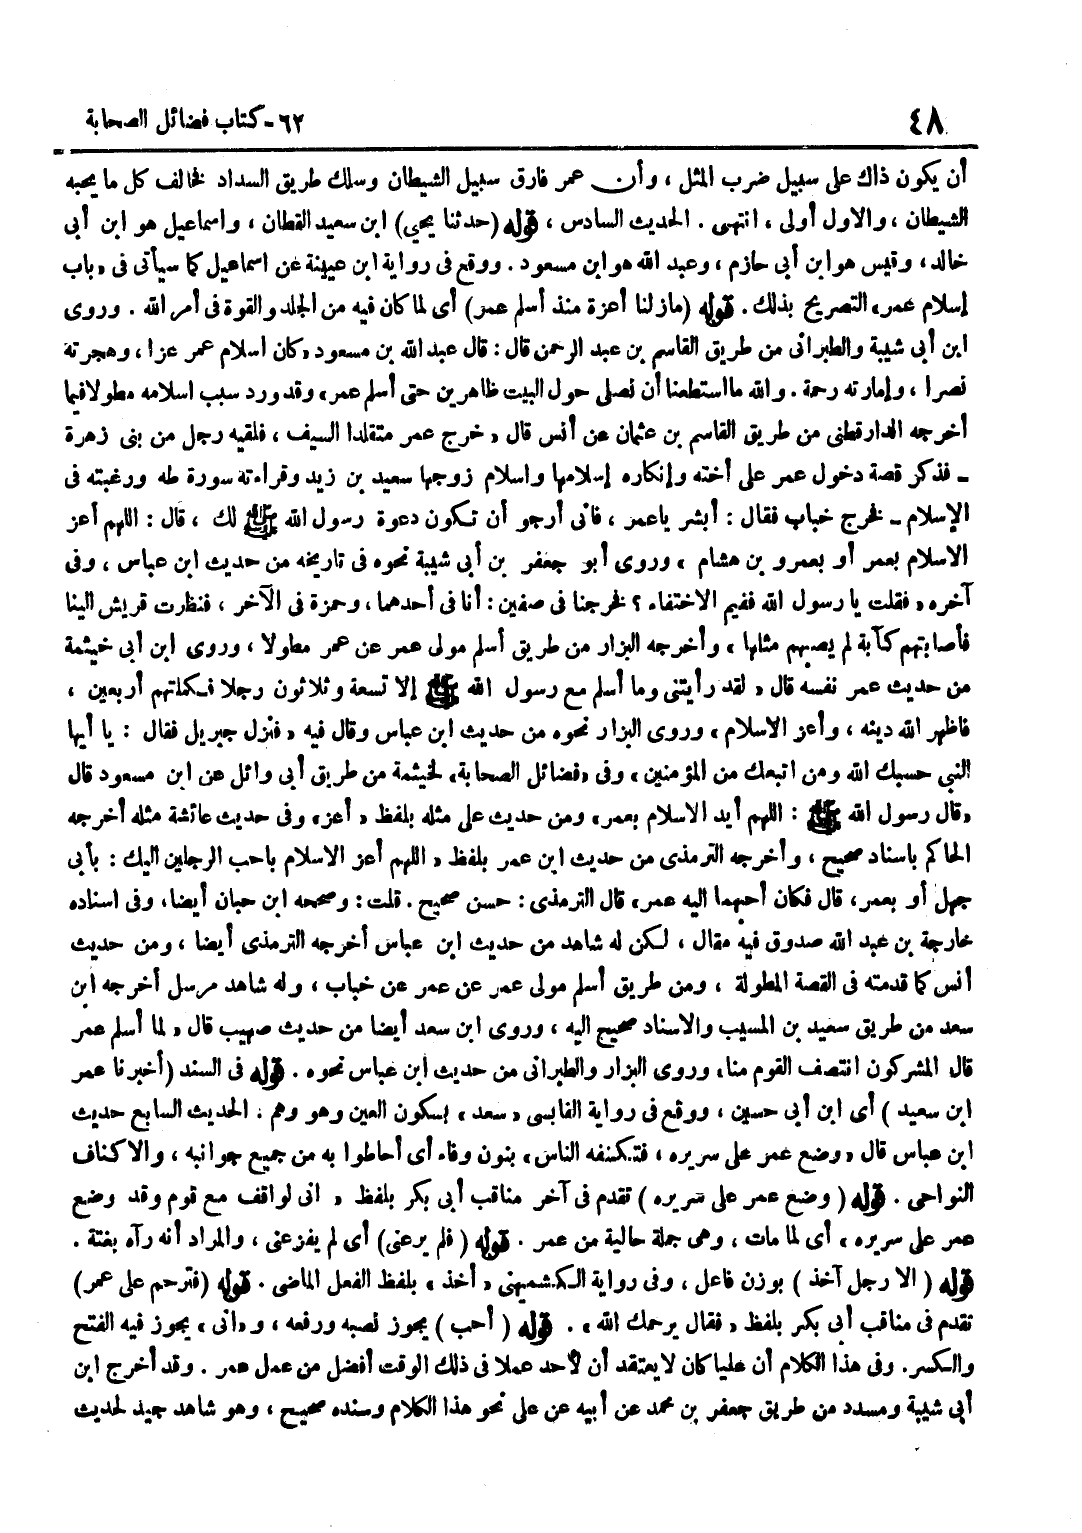 ٤٨
٦٢ - كتاب فضائل الصحابة
أن يكون ذاك على سبيل ضرب المثل ، وأن عمر فارق سبيل الشيطان وسلك طريق السداد فخالف كل ما يحبه
الشيطان ، والاول أولى ، انتهى . الحديث السادس ، قوله ( حدثنا يحيى ) ابن سعيد القطان ، واسماعيل هو ابن أبى
خالد ، وقيس هو ابن أبى حازم ، وعبد الله هو ابن مسعود . ووقع فى رواية ابن عيينة عن اسماعيل كما سيأتى فى « باب
إسلام عمر » التصريح بذلك . قوله ( مازلنا أعزة منذ أسلم عمر ) أى لما كان فيه من الجلد والقوة فى أمر الله . وروى
ابن أبى شيبة والطبرانى من طريق القاسم بن عبد الرحمن قال : قال عبد الله بن مسعود « كان اسلام عمر عزا ، وهجرته
نصرا ، وإمارته رحمة . والله ما استطعنا أن نصلى حول البيت ظاهرين حتى أسلم عمر » وقد ورد سبب اسلامه مطولا فيما
أخرجه الدارقطنى من طريق القاسم بن عثمان عن أنس قال « خرج عمر متقلدا السيف ، فلقيه رجل من بنى زهرة
ـ فذكر قصة دخول عمر على أخته وإنكاره إسلامها واسلام زوجها سعيد بن زيد وقراءته سورة طه ورغبته فى
الإسلام ـ فخرج خباب فقال : أبشر ياعمر ، فانى أرجو أن تكون دعوة رسول الله ﷺ لك ، قال : اللهم أعز
الاسلام بعمر أو بعمرو بن هشام » وروى أبو جعفر بن أبى شيبة نحوه فى تاريخه من حديث ابن عباس ، وفى
آخره « فقلت يا رسول الله ففيم الاختفاء ؟ فخرجنا فى صفين : أنا فى أحدهما ، وحمزة فى الآخر ، فنظرت قريش الينا
فأصابتهم كآبة لم يصبهم مثلها » وأخرجه البزار من طريق أسلم مولى عمر عن عمر مطولا ، وروى ابن أبى خيثمة
من حديث عمر نفسه قال « لقد رأيتنى وما أسلم مع رسول الله ﷺ إلا تسعة وثلاثون رجلا فكملتهم أربعين ،
فاظهر الله دينه ، وأعز الاسلام » وروى البزار نحوه من حديث ابن عباس وقال فيه « فنزل جبريل فقال : يا أيها
النبي حسبك الله ومن اتبعك من المؤمنين » وفى « فضائل الصحابة » لخيثمة من طريق أبى وائل عن ابن مسعود قال
« قال رسول الله ﷺ : اللهم أيد الاسلام بعمر » ومن حديث على مثله بلفظ « أعز » وفى حديث عائشة مثله أخرجه
الحاكم باسناد صحيح ، وأخرجه الترمذى من حديث ابن عمر بلفظ « اللهم أعز الاسلام باحب الرجلين اليك : بأبى
جهل أو بعمر ، قال فكان أحبهما اليه عمر » قال الترمذى : حسن صحيح . قلت : وصححه ابن حبان أيضا ، وفى اسناده
خارجة بن عبد الله صدوق فيه مقال ، لكن له شاهد من حديث ابن عباس أخرجه الترمذى أيضا ، ومن حديث
أنس كما قدمته فى القصة المطولة ، ومن طريق أسلم مولى عمر عن عمر عن خباب ، وله شاهد مرسل أخرجه ابن
سعد من طريق سعيد بن المسيب والاسناد صحيح اليه ، وروى ابن سعد أيضا من حديث صهيب قال « لما أسلم عمر
قال المشركون انتصف القوم منا » وروى البزار والطبرانى من حديث ابن عباس نحوه . قوله فى السند ( أخبرنا عمر
ابن سعيد ) أى ابن أبى حسين ، ووقع فى رواية القابسى « سعد » بسكون العين وهو وهم . الحديث السابع حديث
ابن عباس قال « وضع عمر على سريره ، فتكنفه الناس » بنون وفاء أى أحاطوا به من جميع جوانبه ، والاكناف
النواحى . قوله ( وضع عمر على سريره ) تقدم فى آخر مناقب أبى بكر بلفظ « انى لواقف مع قوم وقد وضع
عمر على سريره » أى لما مات ، وهى جملة حالية من عمر . قوله ( فلم يرعنى ) أى لم يفزعنى ، والمراد أنه رآه بغتة .
قوله ( الا رجل آخذ ) بوزن فاعل ، وفى رواية الكشميهنى « أخذ » بلفظ الفعل الماضى . قوله ( فترحم على عمر )
تقدم فى مناقب أبى بكر بلفظ « فقال يرحمك الله » . قوله ( أحب ) يجوز نصبه ورفعه ، و « انى » يجوز فيه الفتح
والكسر . وفى هذا الكلام أن عليا كان لا يعتقد أن لأحد عملا فى ذلك الوقت أفضل من عمل عمر . وقد أخرج ابن
أبى شيبة ومسدد من طريق جعفر بن محمد عن أبيه عن على نحو هذا الكلام وسنده صحيح ، وهو شاهد جيد لحديث